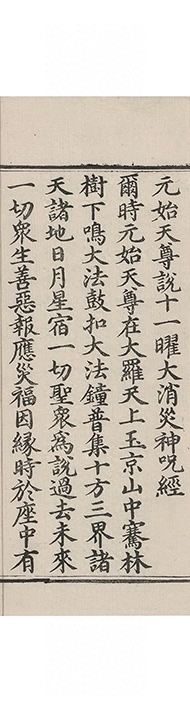 元始天尊說十一曜大消災神呪經
爾時元始天尊在大羅天上玉京山中騫林
樹下鳴大法鼓扣大法鐘普集十方三界諸
天諸地日月星宿一切聖衆爲說過去未來
一切衆生善惡報應災福因緣時於座中有